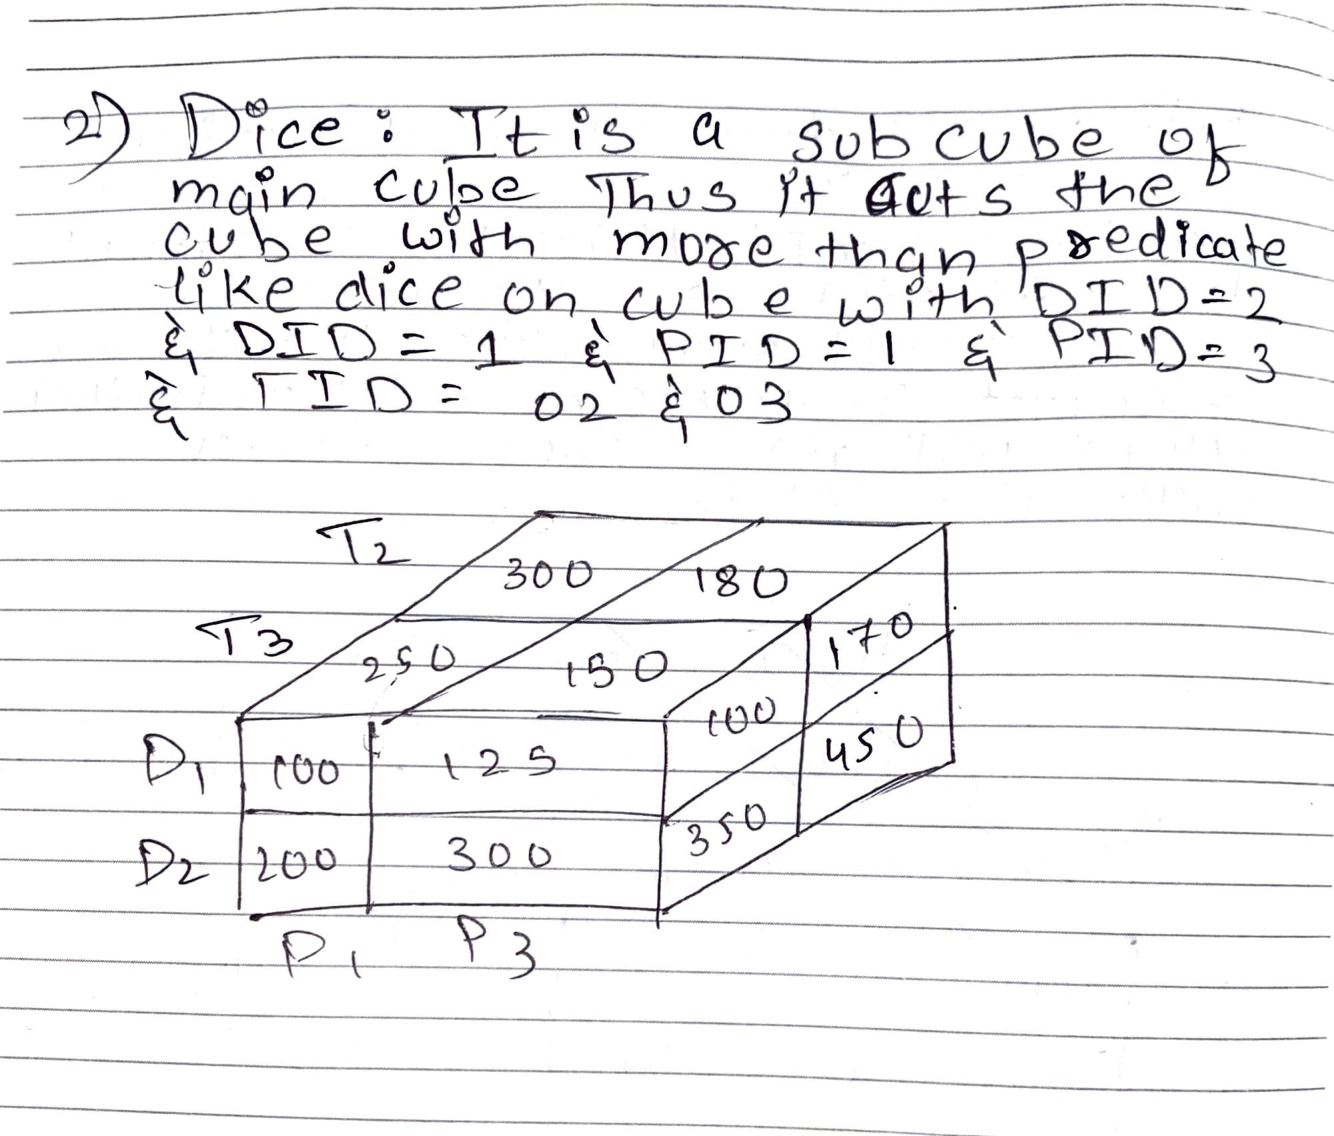 2) Dice : It is a subcube of
main cube Thus it cuts the
cube with more than predicate
like dice on cube with DID=2
& DID = 1 & PID = 1 & PID = 3
& TID = 02 & 03
T2 300 180
T3 250 150 170
D1 100 125 100 450
D2 200 300 350
P1 P3